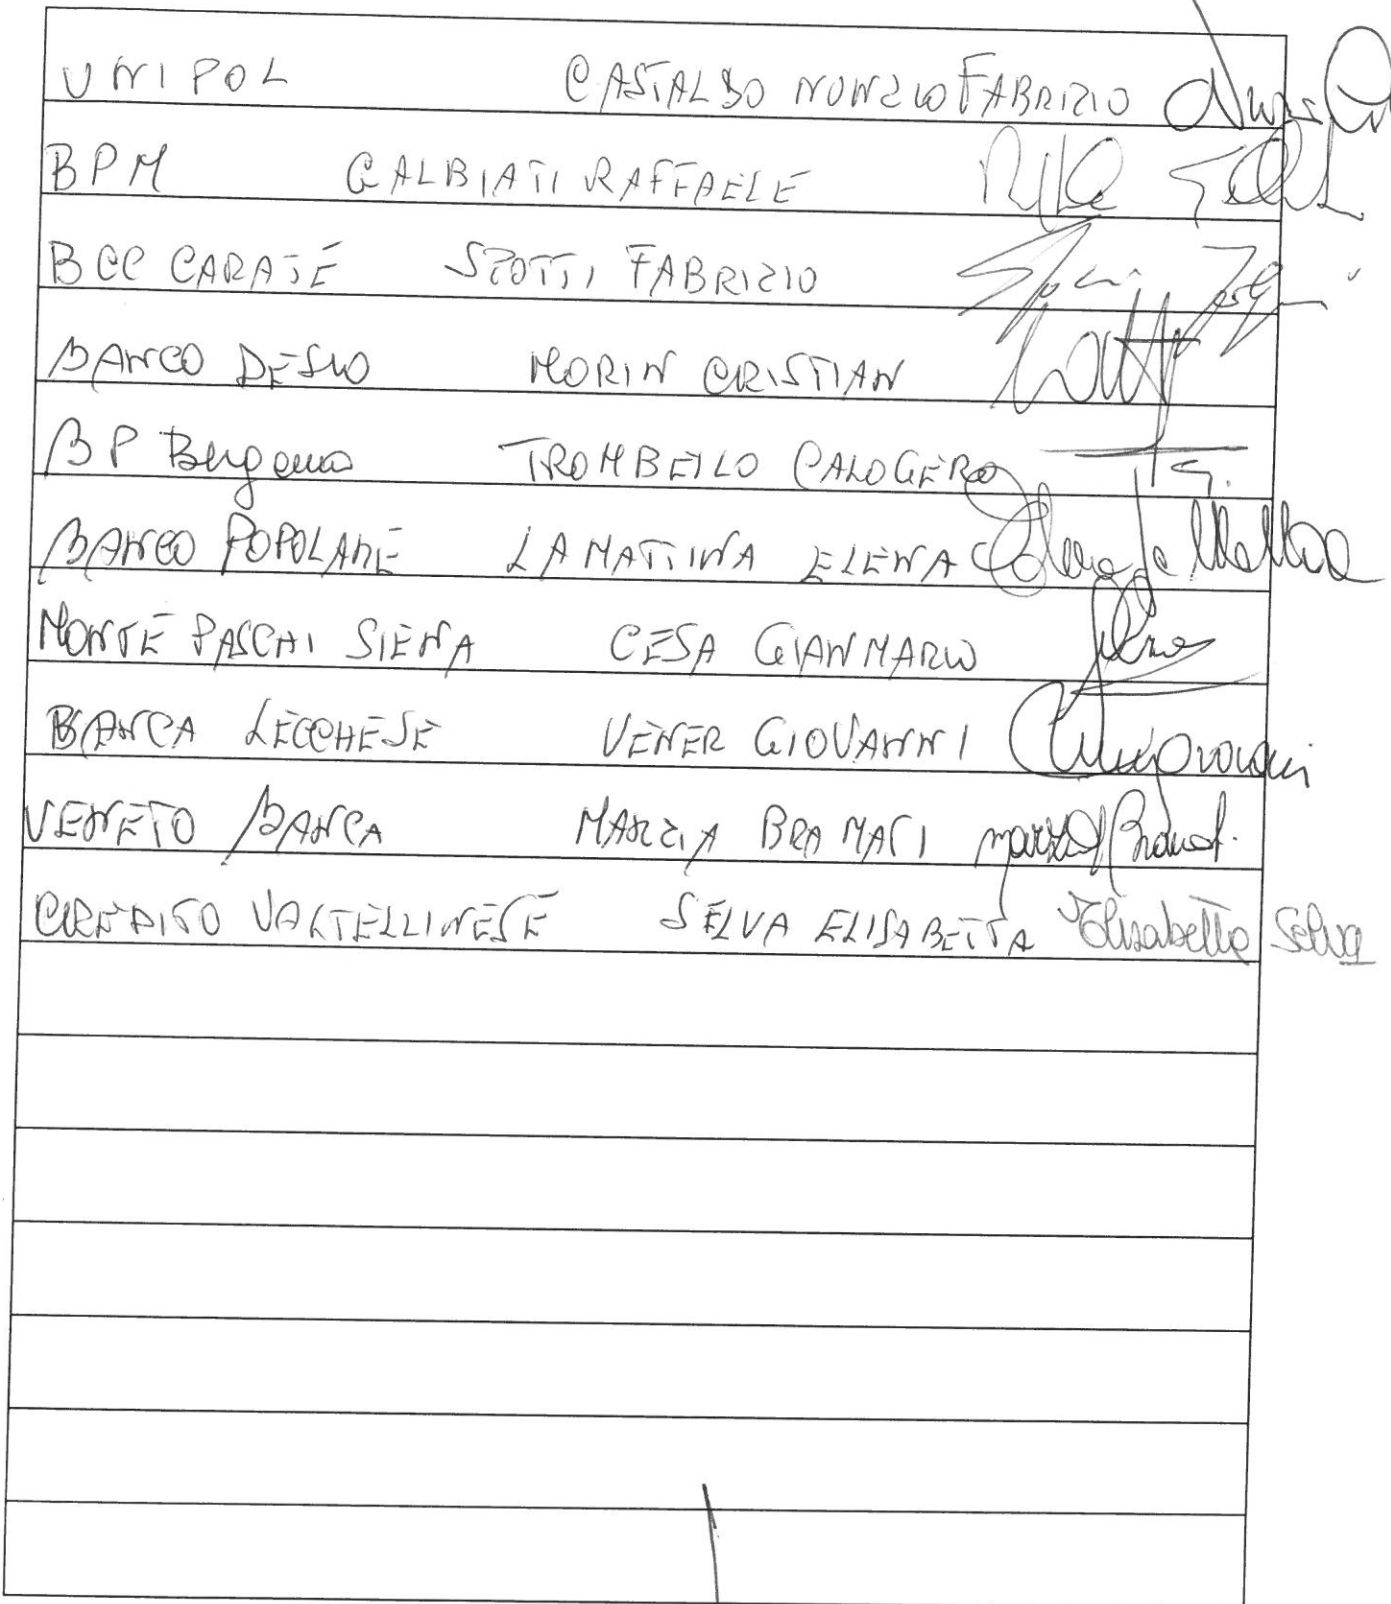 UNIPOL CASTALDO NUNZIO FABRIZIO
BPM GALBIATI RAFFAELE
BCC CARATE FABRIZIO
BANCO DESIO MORIN CRISTIAN
BP Bergamo TROMBELLO CALOGERO
BANCO POPOLARE LA MATTINA ELENA
MONTE PASCHI SIENA CESA GIANMARIO
BANCA LECCHESE VENER GIOVANNI
VENETO BANCA MARZIA BRAMATI
CREDITO VALTELLINESE SELVA ELISABETTA Elisabetta Selva